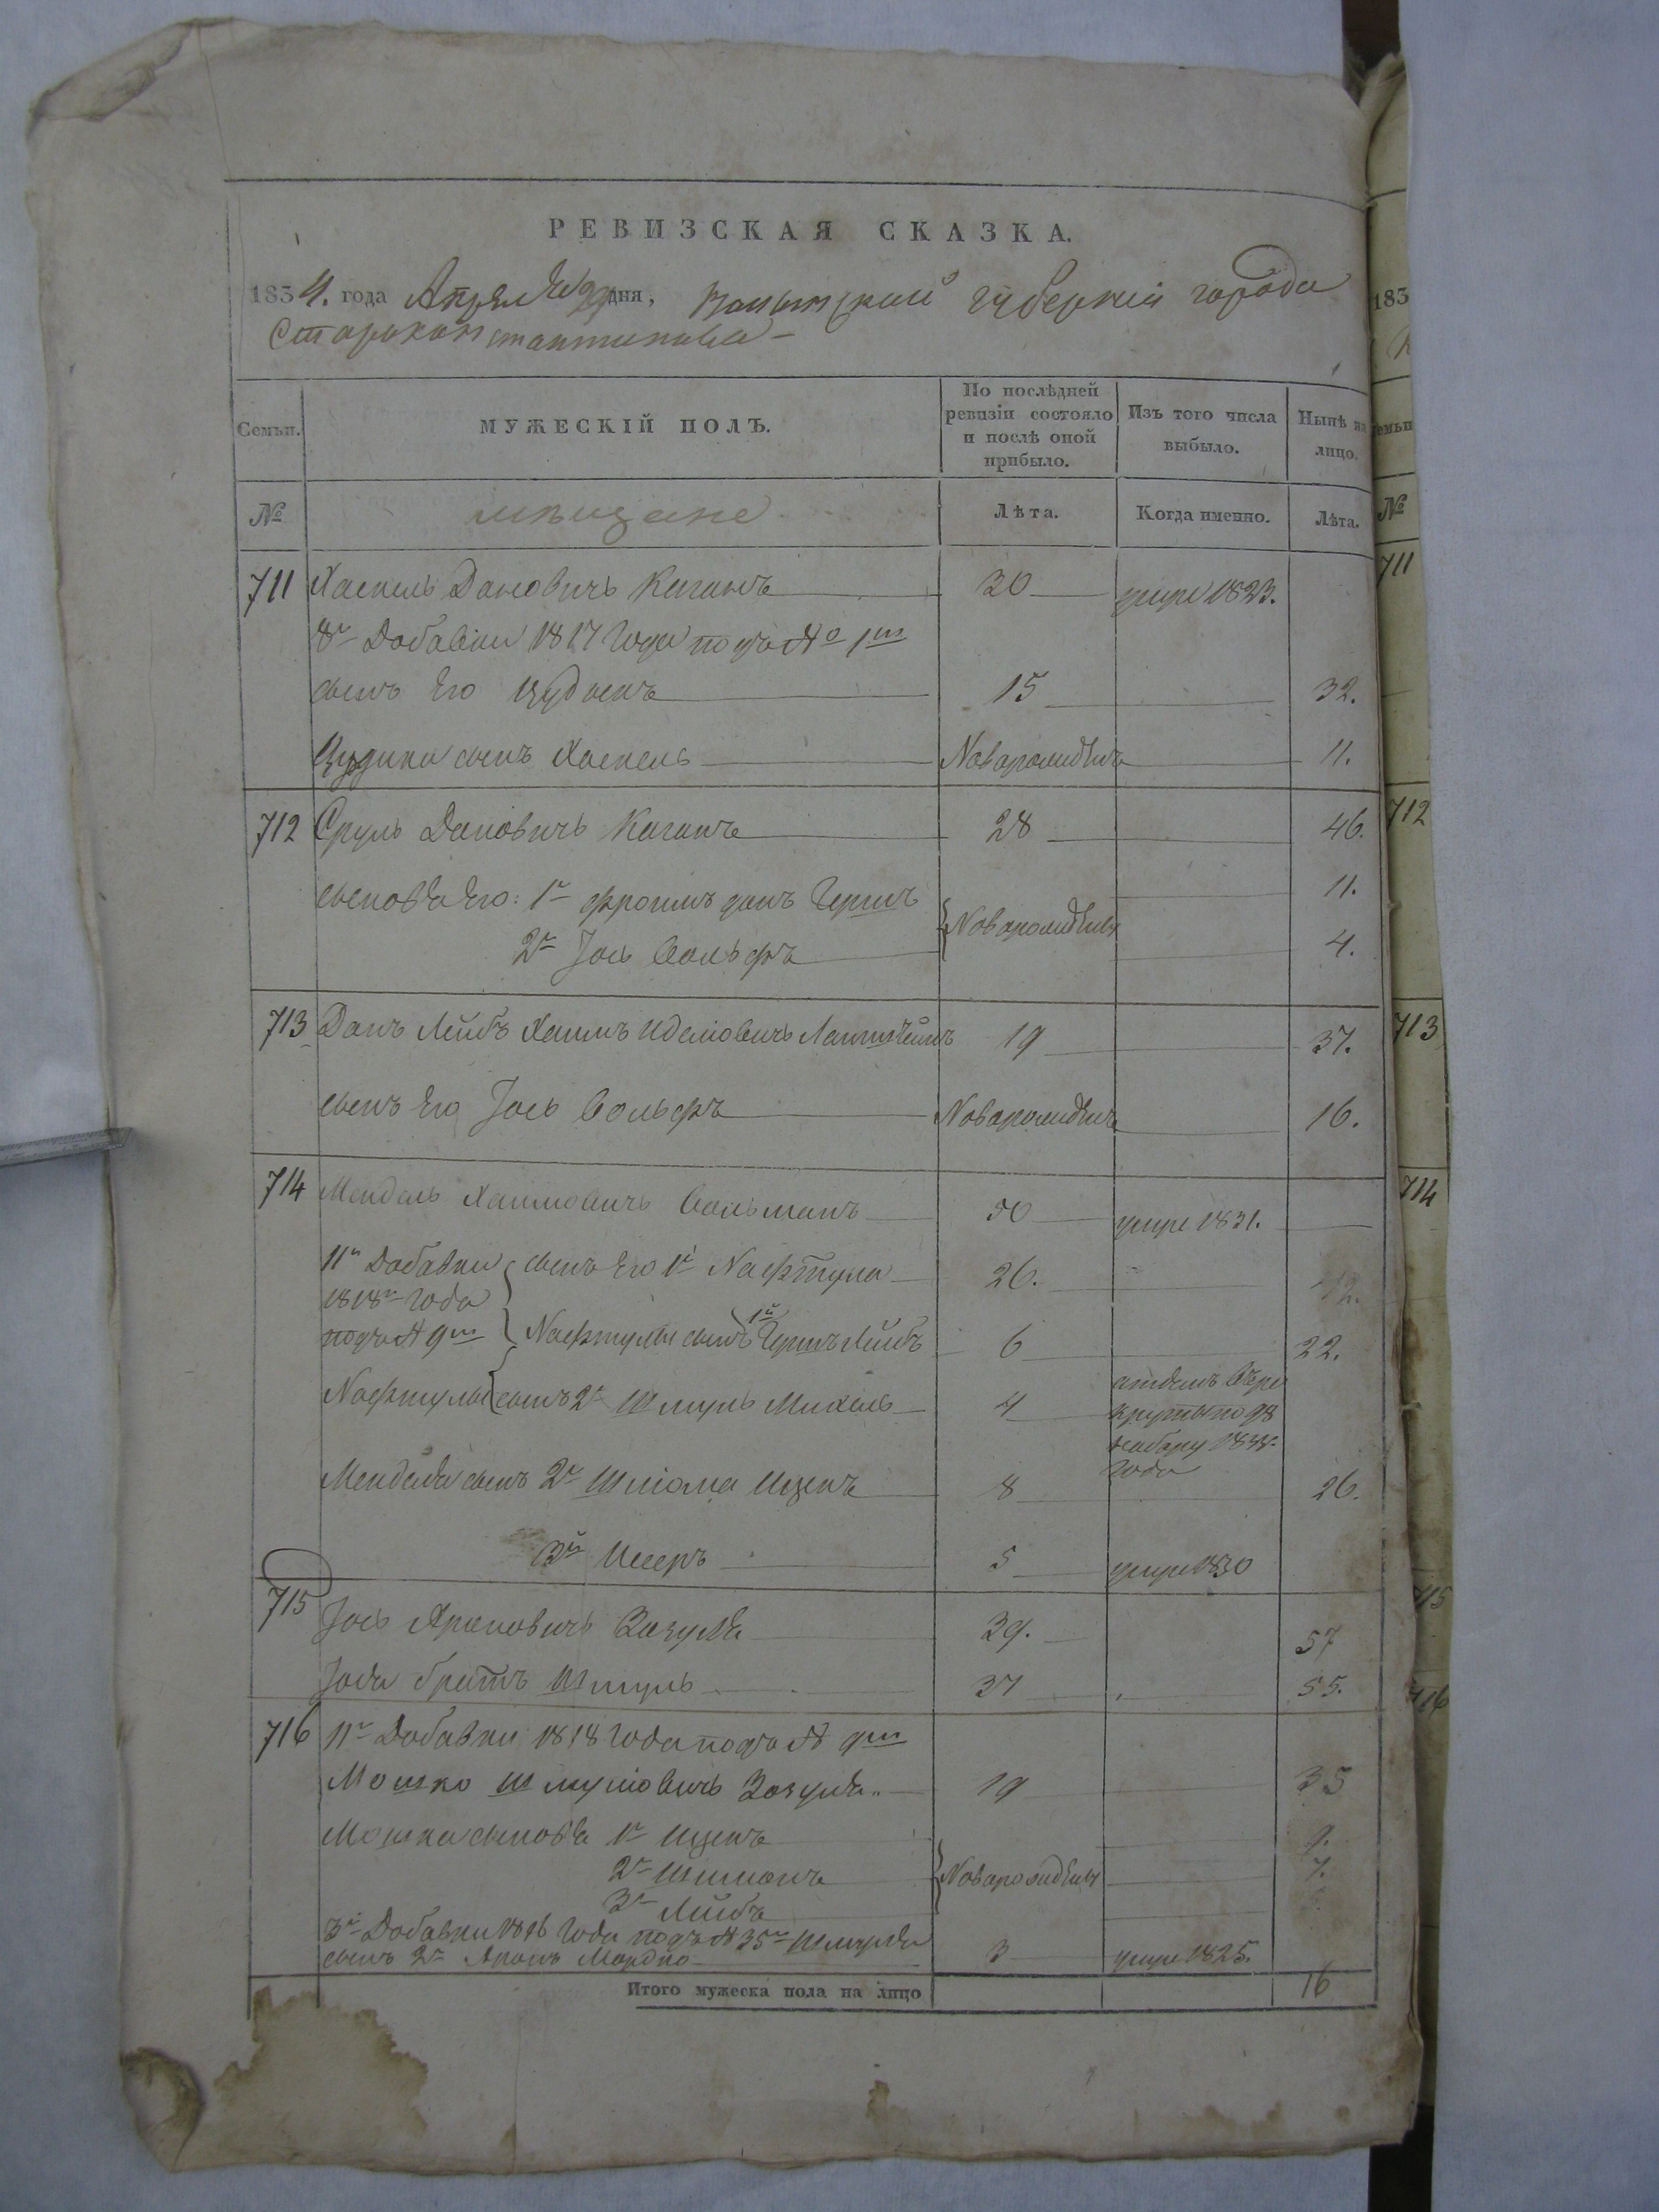 РЕВИЗСКАЯ СКАЗКА.
1834. года Апреля дня, Волынской губерніи города
Староконстантинова –
Семьи. МУЖЕСКІЙ ПОЛЪ. По послѣдней ревизіи состояло и послѣ оной прибыло. Изъ того числа выбыло. Нынѣ на лицо.
№ мещане Лѣта. Когда именно. Лѣта.
711 Хаскель Дановичъ Каганъ 30 умре 1823.
8й Добавки 1817 года подъ № 1м
сынъ Его 15 32.
сынъ Хаскель Новорожденъ 11.
712 Сруль Дановичъ Каганъ 28 46.
сыновья Его: 1й Фроимъ данъ Гершъ 11.
Новорожденны
2й Іось Вольфъ 4.
713 Данъ Лейбъ Хаимъ 19 37.
сынъ Его Іось Вольфъ Новорожденъ 16.
714 Мендель Хаимовичъ Вольманъ 50 умре 1831.
11й Добавки сынъ Его 1й Нафтула 26. 42.
1818го года
подъ № 9м Нафтулы сынъ 1й Гершъ Лейбъ 6 22.
Нафтулы сынъ 2й Шмуль Михель 4 отданъ въ рекруты по 98 набору года
Менделя сынъ 2й Шлюма Ицекъ 8 26.
3й Исеръ 5 умре 1830
715 Іось Ароновичъ Зозуля 39. 57
Іося братъ Шмуль 37 55.
716 11й Добавки 1818 года подъ № 9м
Мошко Шмулювичъ Зозуля 19 35
Мошка сыновья 1й Ицекъ 9.
2й Шимонъ Новорожденны 7.
3й Лейбъ
3й Добавки 1816 года подъ № 35м Шмуля
сынъ 2й Аронъ Мордко 3 умре 1825.
Итого мужеска пола на лицо 16
183
Семьи
№
711
712
713
714
715
716